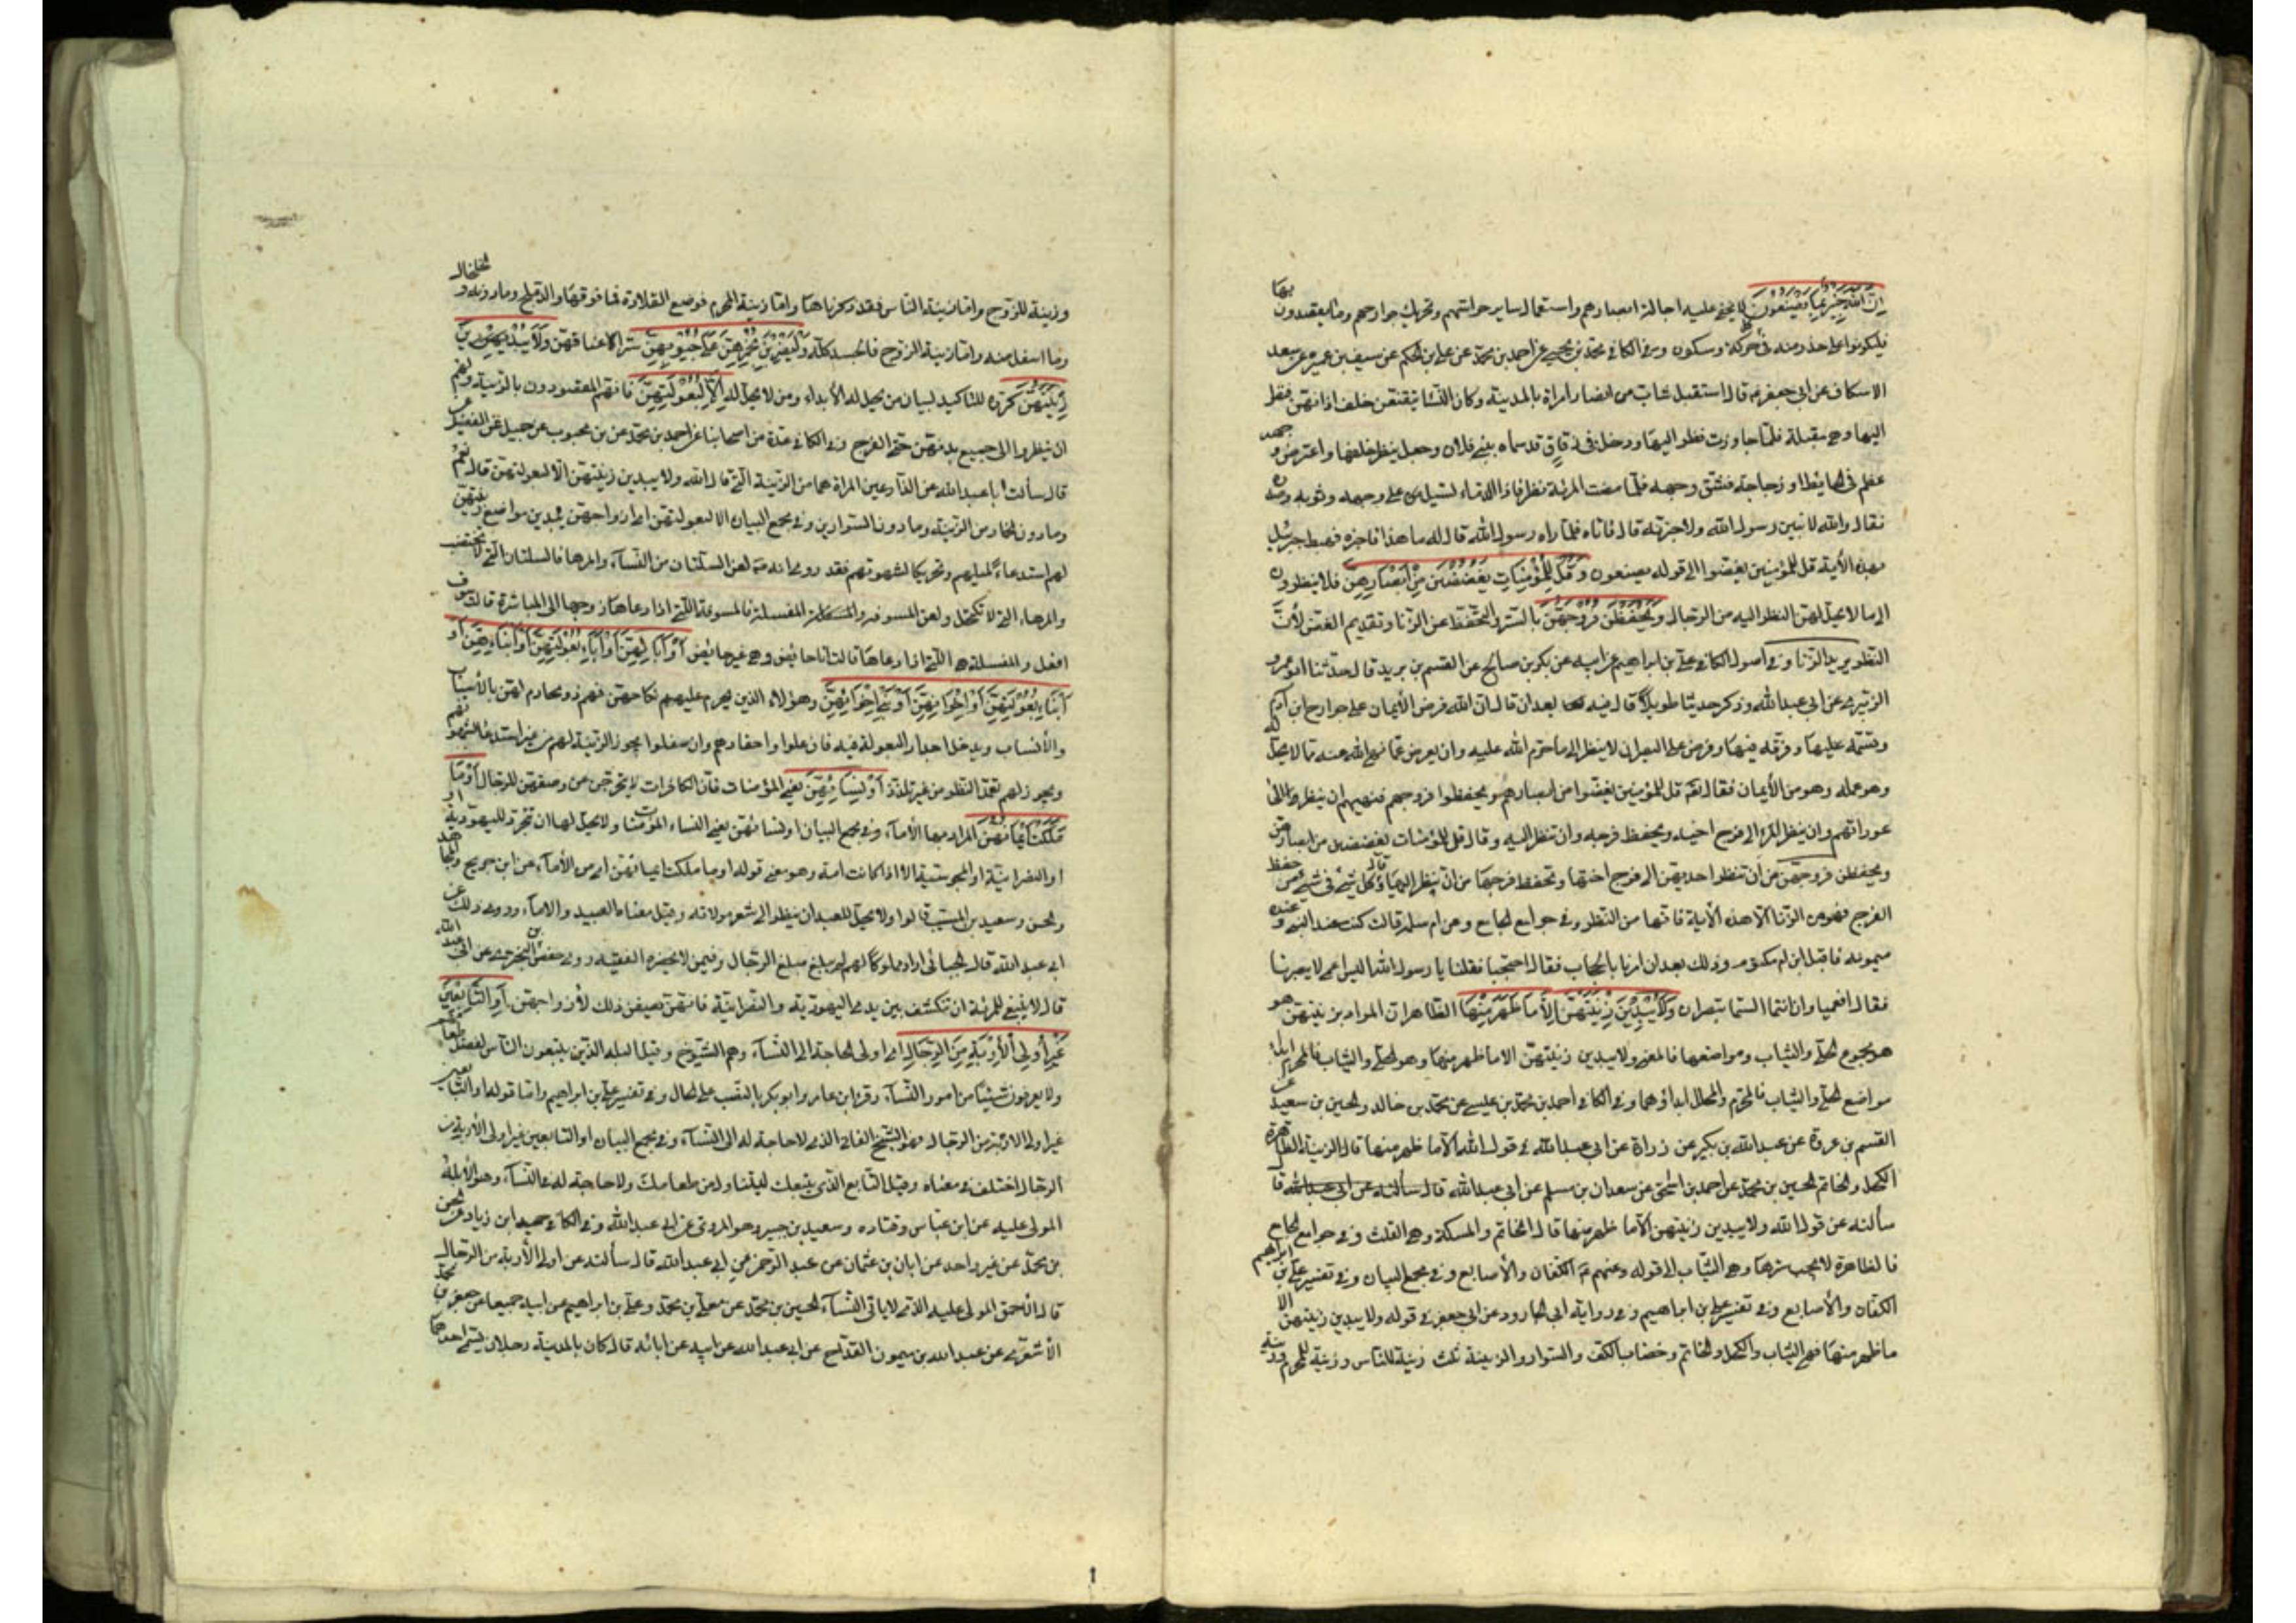 ان الله خبير بما يصنعون لا يخفى عليه اجالة ابصارهم واستعمال ساير حواسهم وتحريك جوارحهم وما يقصدون بها
فليكونوا على حذر منه في حركة وسكون وفي الكافي محمد بن يحيى عن احمد بن محمد عن علي بن الحكم عن سيف بن عميره عن سعد
الاسكاف عن ابي جعفر قال استقبل شاب من انصار امراة بالمدينة وكان النساء يتقنعن خلف اذانهن فنظر
اليها وهي مقبلة فلما جاوزت نظر اليها ودخل في زقاق قد سماه ببني فلان وجعل ينظر خلفها واعترض وجهه
عظم في الحايط او زجاجة فشق وجهه فلما مضت المرئة نظر فاذا الدماء تسيل على وجهه وثوبه
فقال والله لاتين رسول الله ولاخبرنه قال فاتاه فلما راه رسول الله قال له ما هذا فاخبره فهبط جبرئيل
بهذه الآية قل للمؤمنين يغضوا الى قوله يصنعون وقل للمؤمنات يغضضن من ابصارهن فلا ينظرون
الى ما لا يحل لهن النظر اليه من الرجال ويحفظن فروجهن بالتستر او التحفظ عن الزنا وتقديم الغض لأن
النظر بريد الزنا وفي اصول الكافي علي بن ابراهيم عن ابيه عن بكر بن صالح عن القسم بن بريد قال حدثنا ابو عمرو
الزبيري عن ابي عبد الله وذكر حديثا طويلا قال فيه بعد ان قال ان الله فرض الأيمان على جوارح ابن آدم
وقسمه عليها وفرقه فيها وفرض على البصر ان لا ينظر الى ما حرم الله عليه وان يعرض عما نهى الله عنه مما لا يحل له
وهو عمله وهو من الأيمان فقال قل للمؤمنين يغضوا من ابصارهم ويحفظوا فروجهم فنهيهم ان ينظروا الى
عوراتهم وان ينظر المرء الى فرج اخيه ويحفظ فرجه وان تنظر اليه وقال قل للمؤمنات يغضضن من ابصارهن
ويحفظن فروجهن من أن تنظر احديهن الى فرج اختها وتحفظ فرجها من ان ينظر اليها وقال كل شئ في حفظ
الفرج فهو من الزنا الا هذه الأية فانها من النظر وفي جوامع الجامع وعن ام سلمه قالت كنت عند النبي وعنده
ميمونه فاقبل ابن ام مكتوم وذلك بعد ان امرنا بالحجاب فقال احتجبا فقلنا يا رسول الله اليس اعمى لا يبصرنا
فقال افعميا وان انتما الستما تبصران ولا يبدين زينتهن الا ما ظهر منها الظاهرات المراد بزينتهن هو
هو مجموع الحلي والثياب ومواضعها فالمعنى ولا يبدين زينتهن الا ما ظهر منها وهو الحلي والثياب
مواضع الحلي والثياب وفي الكافي احمد بن محمد بن عيسى عن محمد بن خالد والحسين بن سعيد عن
القسم بن عروة عن عبد الله بن بكير عن زرارة عن ابي عبد الله في قول الله الا ما ظهر منها قال الزينة الظاهرة
الكحل والخاتم الحسين بن محمد عن احمد بن اسحق عن سعدان بن مسلم عن ابي عبد الله قال سألته عن ابي عبد الله قا
سألته عن قول الله ولا يبدين زينتهن الا ما ظهر منها قال الخاتم والمسكة وهي القلب وفي جوامع الجامع
فالظاهرة لا يجب سترها وهي الثياب الى قوله وعنهم الكفان والأصابع وفي مجمع البيان وفي تفسير علي بن ابراهيم
الكفان والأصابع وفي تفسير علي بن ابراهيم وفي رواية ابي الجارود عن ابي جعفر في قوله ولا يبدين زينتهن الا
ما ظهر منها فهي الثياب والكحل والخاتم وخضاب الكف والسوار والزينة ثلث زينة للناس وزينة للمحرم وزينة
وزينة للزوج واما زينة الناس فقد ذكرناها واما زينة المحرم فوضع القلادة فما فوقها والدملج وما دونه والخلخال
وما اسفل منه واما زينة الزوج فالجسد كله وليضربن بخمرهن على جيوبهن سترا لاعناقهن ولا يبدين
زينتهن كرره للتاكيد لبيان من يحل له الأبداء ومن لا يحل له الا لبعولتهن فانهم المقصودون بالزينة ولهم
ان ينظروا الى جميع بدنهن حتى الفرج وفي الكافي عدة من اصحابنا عن احمد بن محمد عن بن محبوب عن جميل عن الفضيل
قال سألت ابا عبد الله عن الذراعين المراة هما من الزينة التي قال الله ولا يبدين زينتهن الا لبعولتهن قال نعم
وما دون الخمار من الزينة وما دون السوارين وفي مجمع البيان الا لبعولتهن اي ازواجهن يبدين مواضع زينتهن
لهم استدعاء لميلهم وتحريكا لشهوتهم فقد روى انه لعن السلتاء من النساء والمرهاء فالسلتاء التي لا تختضب
والمرهاء التي لا تكتحل ولعن المسوفه والمفسلة فالمسوفة التي اذا دعاها زوجها الى المباشرة قالت سوف
افعل والمفسلة هي التي اذا دعاها قالت انا حائض وهي غير حائض أو آبائهن أو آباء بعولتهن أو أبنائهن أو
أبناء بعولتهن أو إخوانهن أو بني إخوانهن وهؤلاء الذين يحرم عليهم نكاحهن فهم ذو محارم لهن بالأسباب
والأنساب ويدخل اجداد البعولة فيه فان علوا واحفادهم وان سفلوا يجوز الزينة لهم من غير استدعاء
ويجوز لهم تعمد النظر من غير تلذذ أو نسائهن يعني المؤمنات فان الكافرات لا يتحرجن عن وصفهن للرجال أو ما
ملكت أيمانهن المراد بها الأمآء وفي مجمع البيان او نسائهن يعني النساء المؤمنات ولا يحل لها ان تتجرد لليهودية
او النصرانية او المجوسية الا اذا كانت امة وهو معنى قوله او ما ملكت ايمانهن اي من الأمآء عن ابن جريح ومجاهد
والحسن وسعيد بن المسيب قالوا ولا يحل للعبد ان ينظر الى شعر مولاته وقيل معناه العبيد والامآء وروى ذلك عن
ابي عبد الله قال الجبائي اراد مملوكا لهم لم يبلغ مبلغ الرجال وفيمن لا يحضره الفقيه روى حفص بن البختري عن ابي عبد الله
قال لا ينبغي للمرئة ان تنكشف بين يدي اليهودية والنصرانية فانهن يصفن ذلك لأزواجهن أو التابعين
غير أولي الأربة من الرجال اي اولى الحاجة الى النسآء وهم الشيوخ وقيل البله الذين يتبعون الناس لفضل طعامهم
ولا يعرفون شيئا من امور النسآء وقرئ ابن عامر وابو بكر بالنصب على الحال وفي تفسير علي بن ابراهيم واما قوله او التابعين
غير اولى الاربة من الرجال فهو الشيخ الفاني الذي لا حاجة له الى النسآء وفي مجمع البيان او التابعين غير اولى الأربة من
الرجال اختلف في معناه وقيل التابع الذي يتبعك ليتناول من طعامك ولا حاجة له في النسآء وهو الأبله
المولى عليه عن ابن عباس وقتاده وسعيد بن جبير وهو المروي عن ابي عبد الله وفي الكافي حميد ابن زياد عن الحسن
بن محمد عن غير واحد عن ابان بن عثمان عن عبد الرحمن عن ابي عبد الله قال سألته عن اولى الأربة من الرجال
قال الأحمق المولى عليه الذي لا ياتي النسآء الحسين بن محمد عن معلى بن محمد وعلي بن ابراهيم عن ابيه جميعا عن جعفر بن محمد
الأشعري عن عبد الله بن ميمون القداح عن ابي عبد الله عن ابيه عن ابائه قال كان بالمدينة رجلان يسمى احدهما